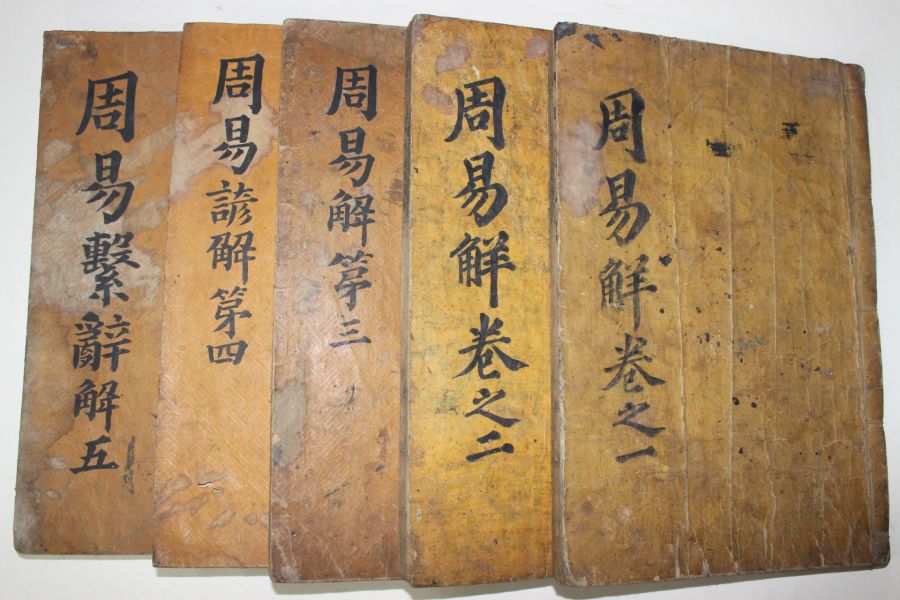 周易解卷之一
周易解卷之二
周易解第三
周易諺解第四
周易繫辭解五